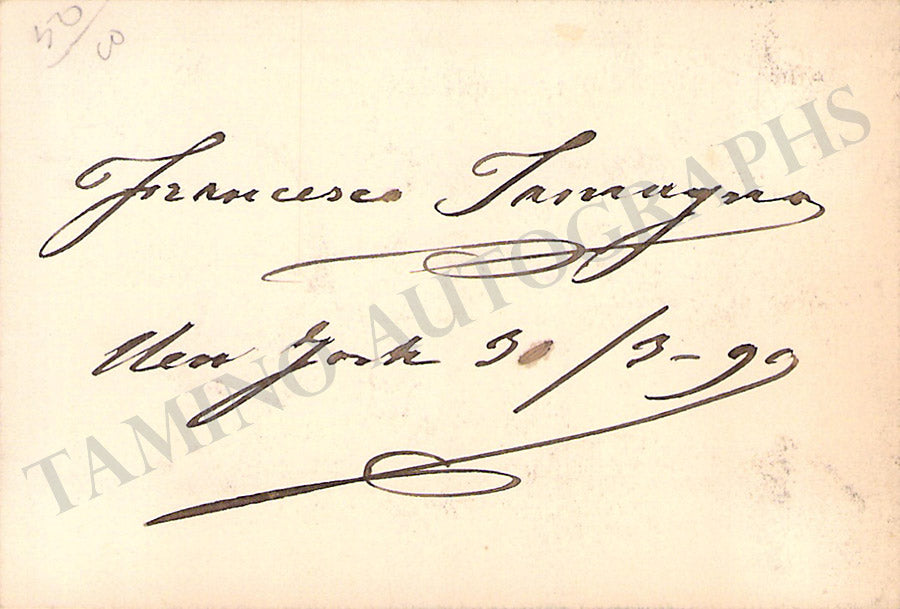 Francesco Tamagno
New York 30/3-90
TAMINO AUTOGRAPHS